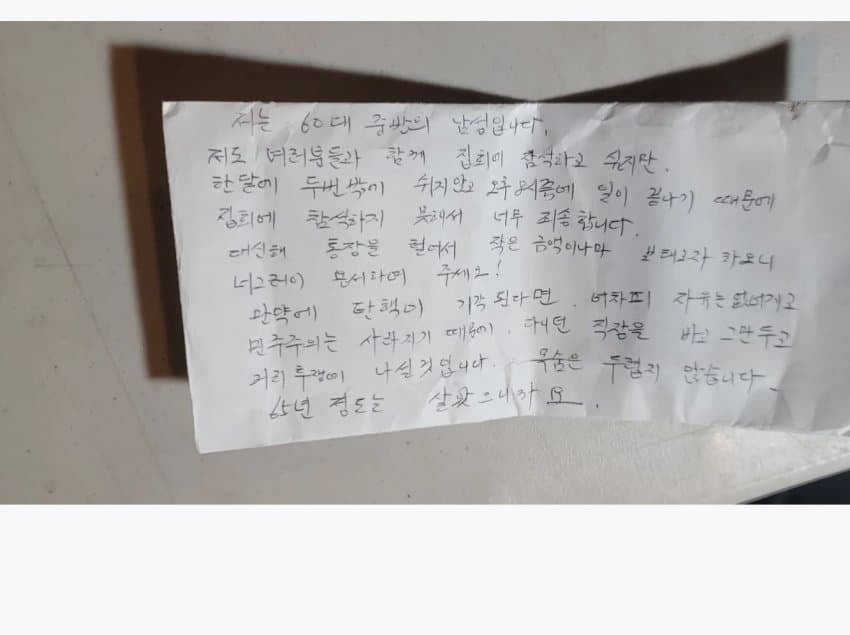 저는 60대 중반의 남성입니다.
저도 여러분들과 함께 집회에 참석하고 싶지만.
한달에 두번밖에 쉬지않고 오후8시쯤에 일이 끝나기 때문에
집회에 참석하지 못해서 너무 죄송합니다.
대신해 통장을 털어서 작은 금액이나마 보태고자 하오니
너그러이 용서하여 주세요!
만약에 탄핵이 기각 된다면. 어차피 자유는 없어지고
민주주의는 사라지기 때문에. 다니던 직장을 바로 그만두고
거리투쟁에 나설것입니다. 목숨은 두렵지 않습니다.
65년 정도는 살았으니까요.